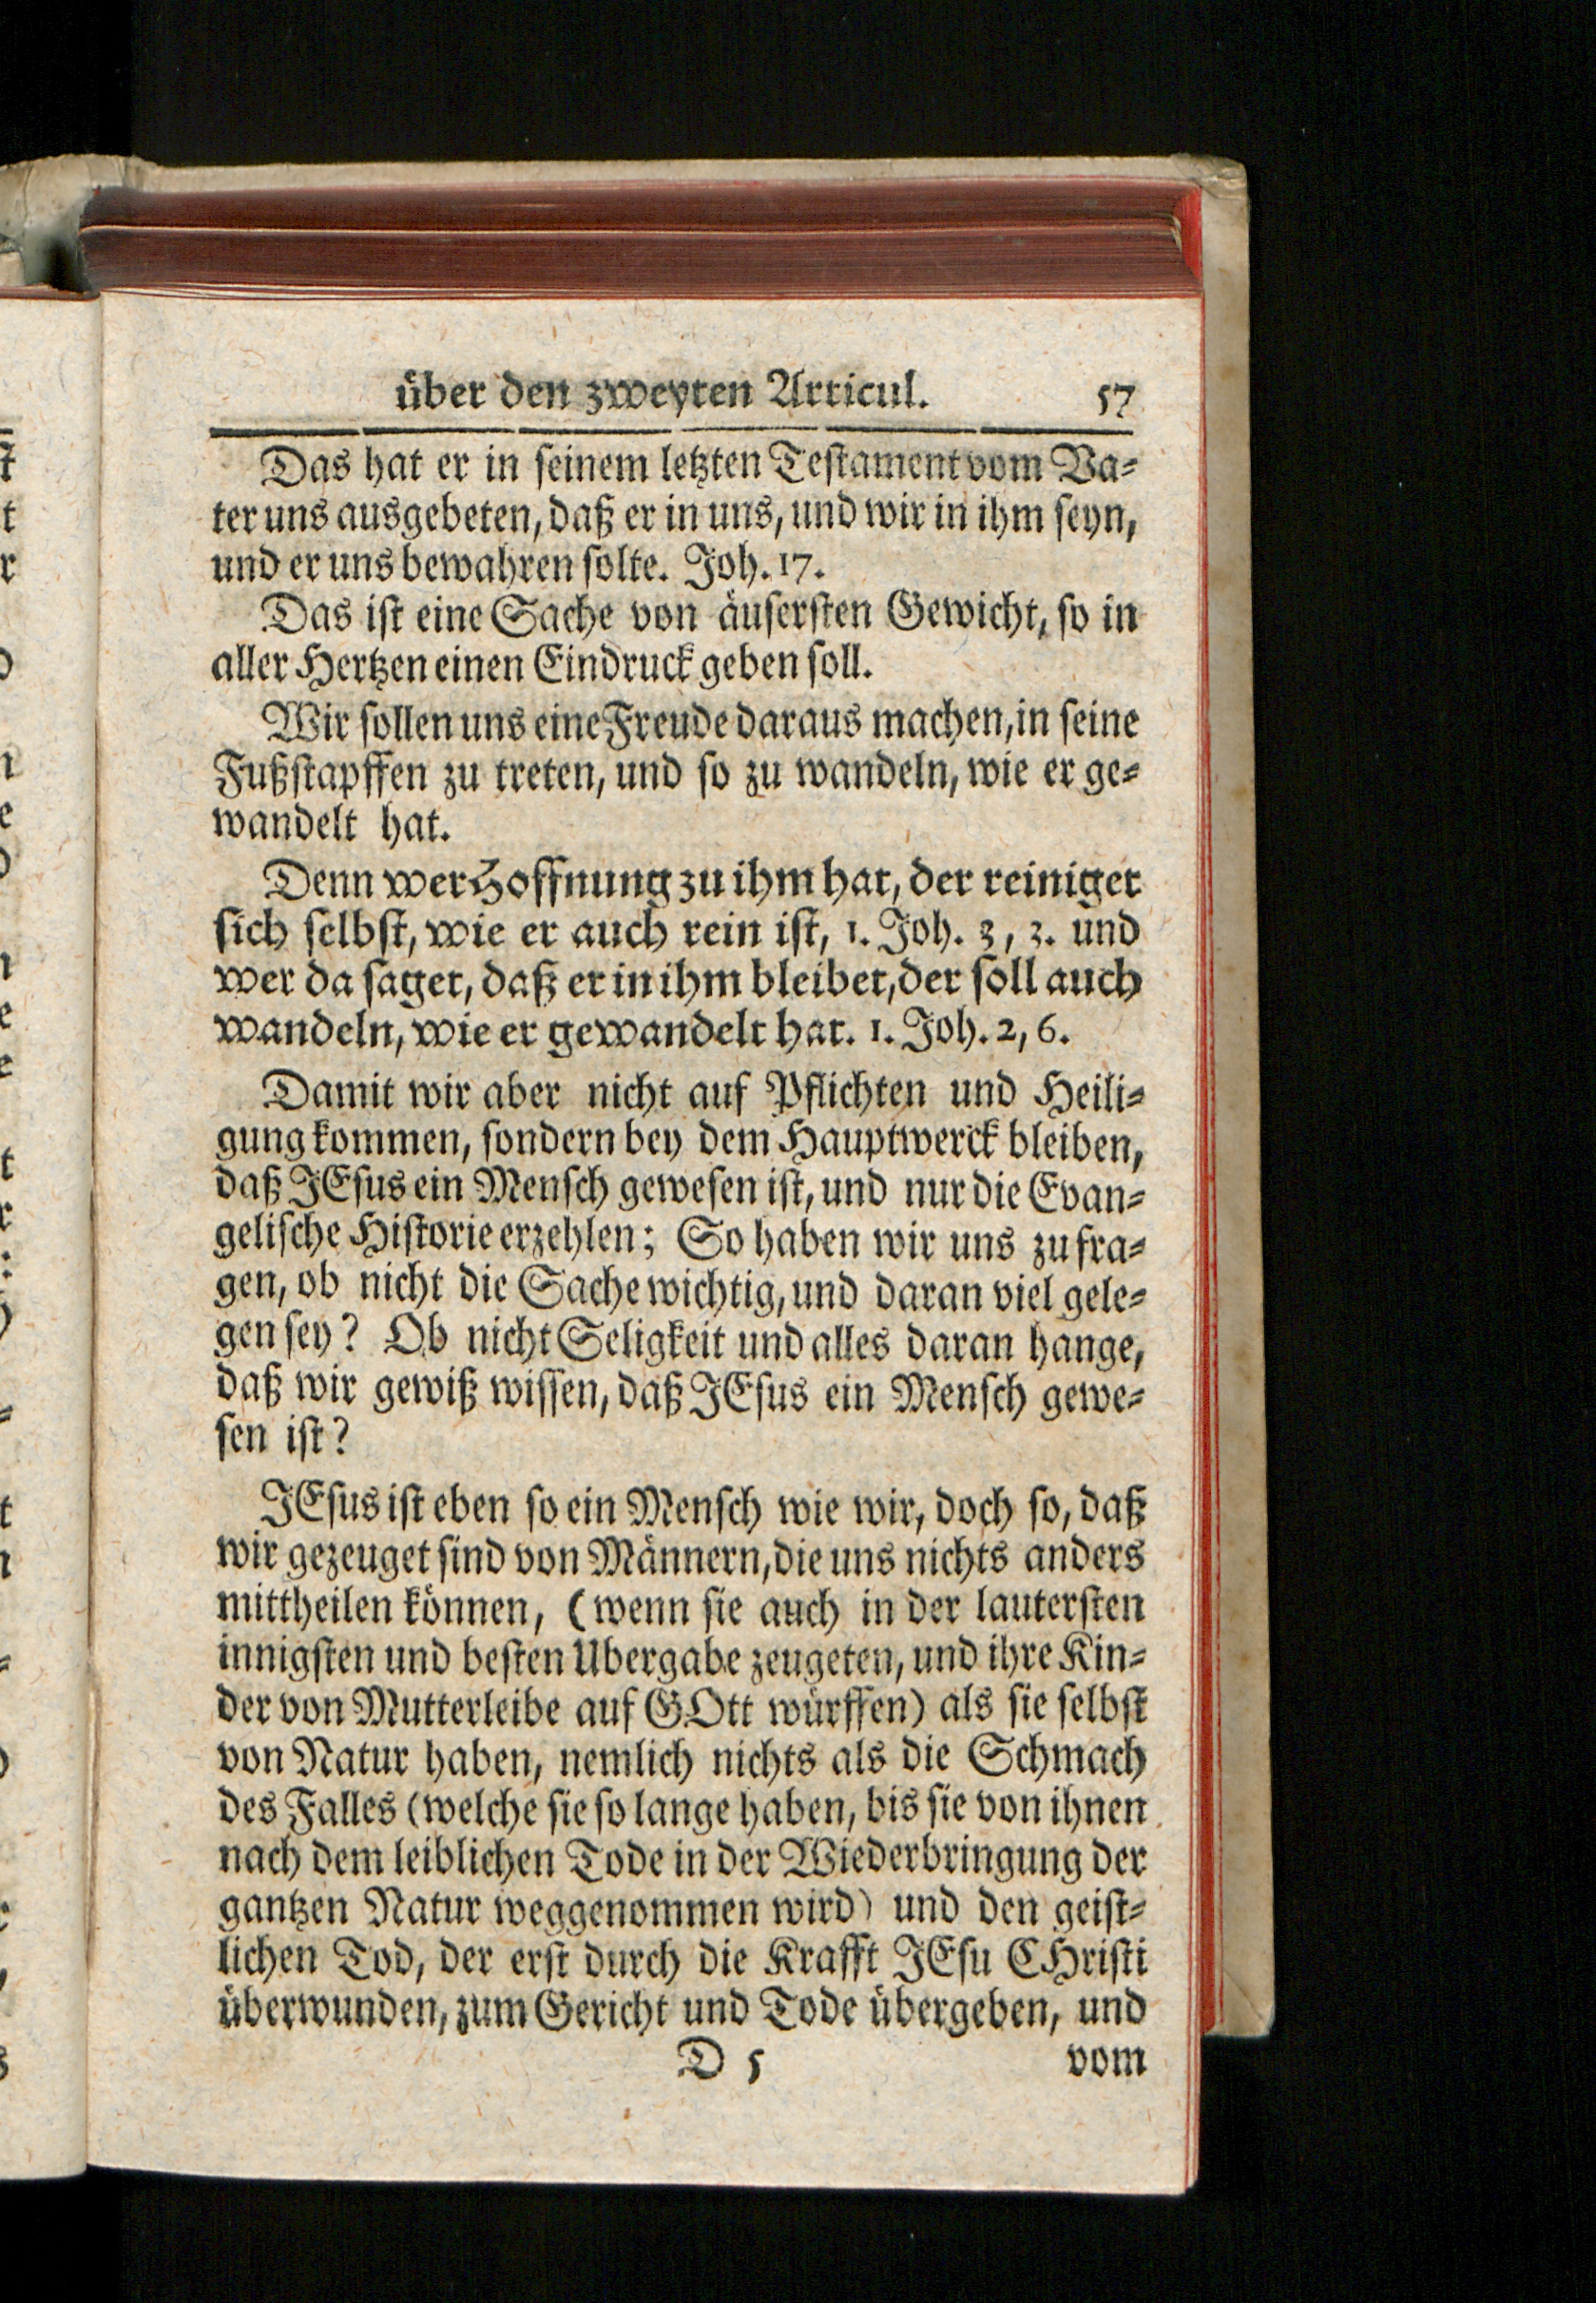 über den zweyten Articul. 57
Das hat er in seinem letzten Testament vom Va-
ter uns ausgebeten, daß er in uns, und wir in ihm seyn,
und er uns bewahren solte. Joh. 17.
Das ist eine Sache von äusersten Gewicht, so in
aller Hertzen einen Eindruck geben soll.
Wir sollen uns eine Freude daraus machen, in seine
Fußstapffen zu treten, und so zu wandeln, wie er ge-
wandelt hat.
Denn wer Hoffnung zu ihm hat, der reiniget
sich selbst, wie er auch rein ist, 1. Joh. 3, 3. und
wer da saget, daß er in ihm bleibet, der soll auch
wandeln, wie er gewandelt hat. 1. Joh. 2, 6.
Damit wir aber nicht auf Pflichten und Heili-
gung kommen, sondern bey dem Hauptwerck bleiben,
daß JEsus ein Mensch gewesen ist, und nur die Evan-
gelische Historie erzehlen; So haben wir uns zu fra-
gen, ob nicht die Sache wichtig, und daran viel gele-
gen sey? Ob nicht Seligkeit und alles daran hange,
daß wir gewiß wissen, daß JEsus ein Mensch gewe-
sen ist?
JEsus ist eben so ein Mensch wie wir, doch so, daß
wir gezeuget sind von Männern, die uns nichts anders
mittheilen können, (wenn sie auch in der lautersten
innigsten und besten Ubergabe zeugeten, und ihre Kin-
der von Mutterleibe auf GOtt würffen) als sie selbst
von Natur haben, nemlich nichts als die Schmach
des Falles (welche sie so lange haben, bis sie von ihnen
nach dem leiblichen Tode in der Wiederbringung der
gantzen Natur weggenommen wird) und den geist-
lichen Tod, der erst durch die Krafft JEsu CHristi
überwunden, zum Gericht und Tode übergeben, und
D 5 vom